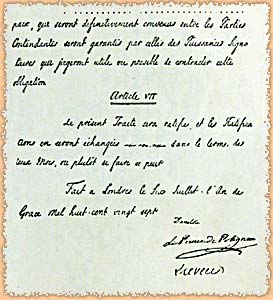 paix, que seront définitivement convenues entre les Parties
Contendantes seront garantis par celles des Puissances Signa
taires que jugeront utile ou possible de contracter cette
obligation
Article VII
Le présent Traité sera ratifié, et les Ratifica
tions en seront échangées dans le terme de
deux Mois, ou plutôt si faire se peut
Fait à Londres le Six Juillet. l'An de
Grace Mil huit-cent vingt sept
Le Prince de Polignac
Lieven